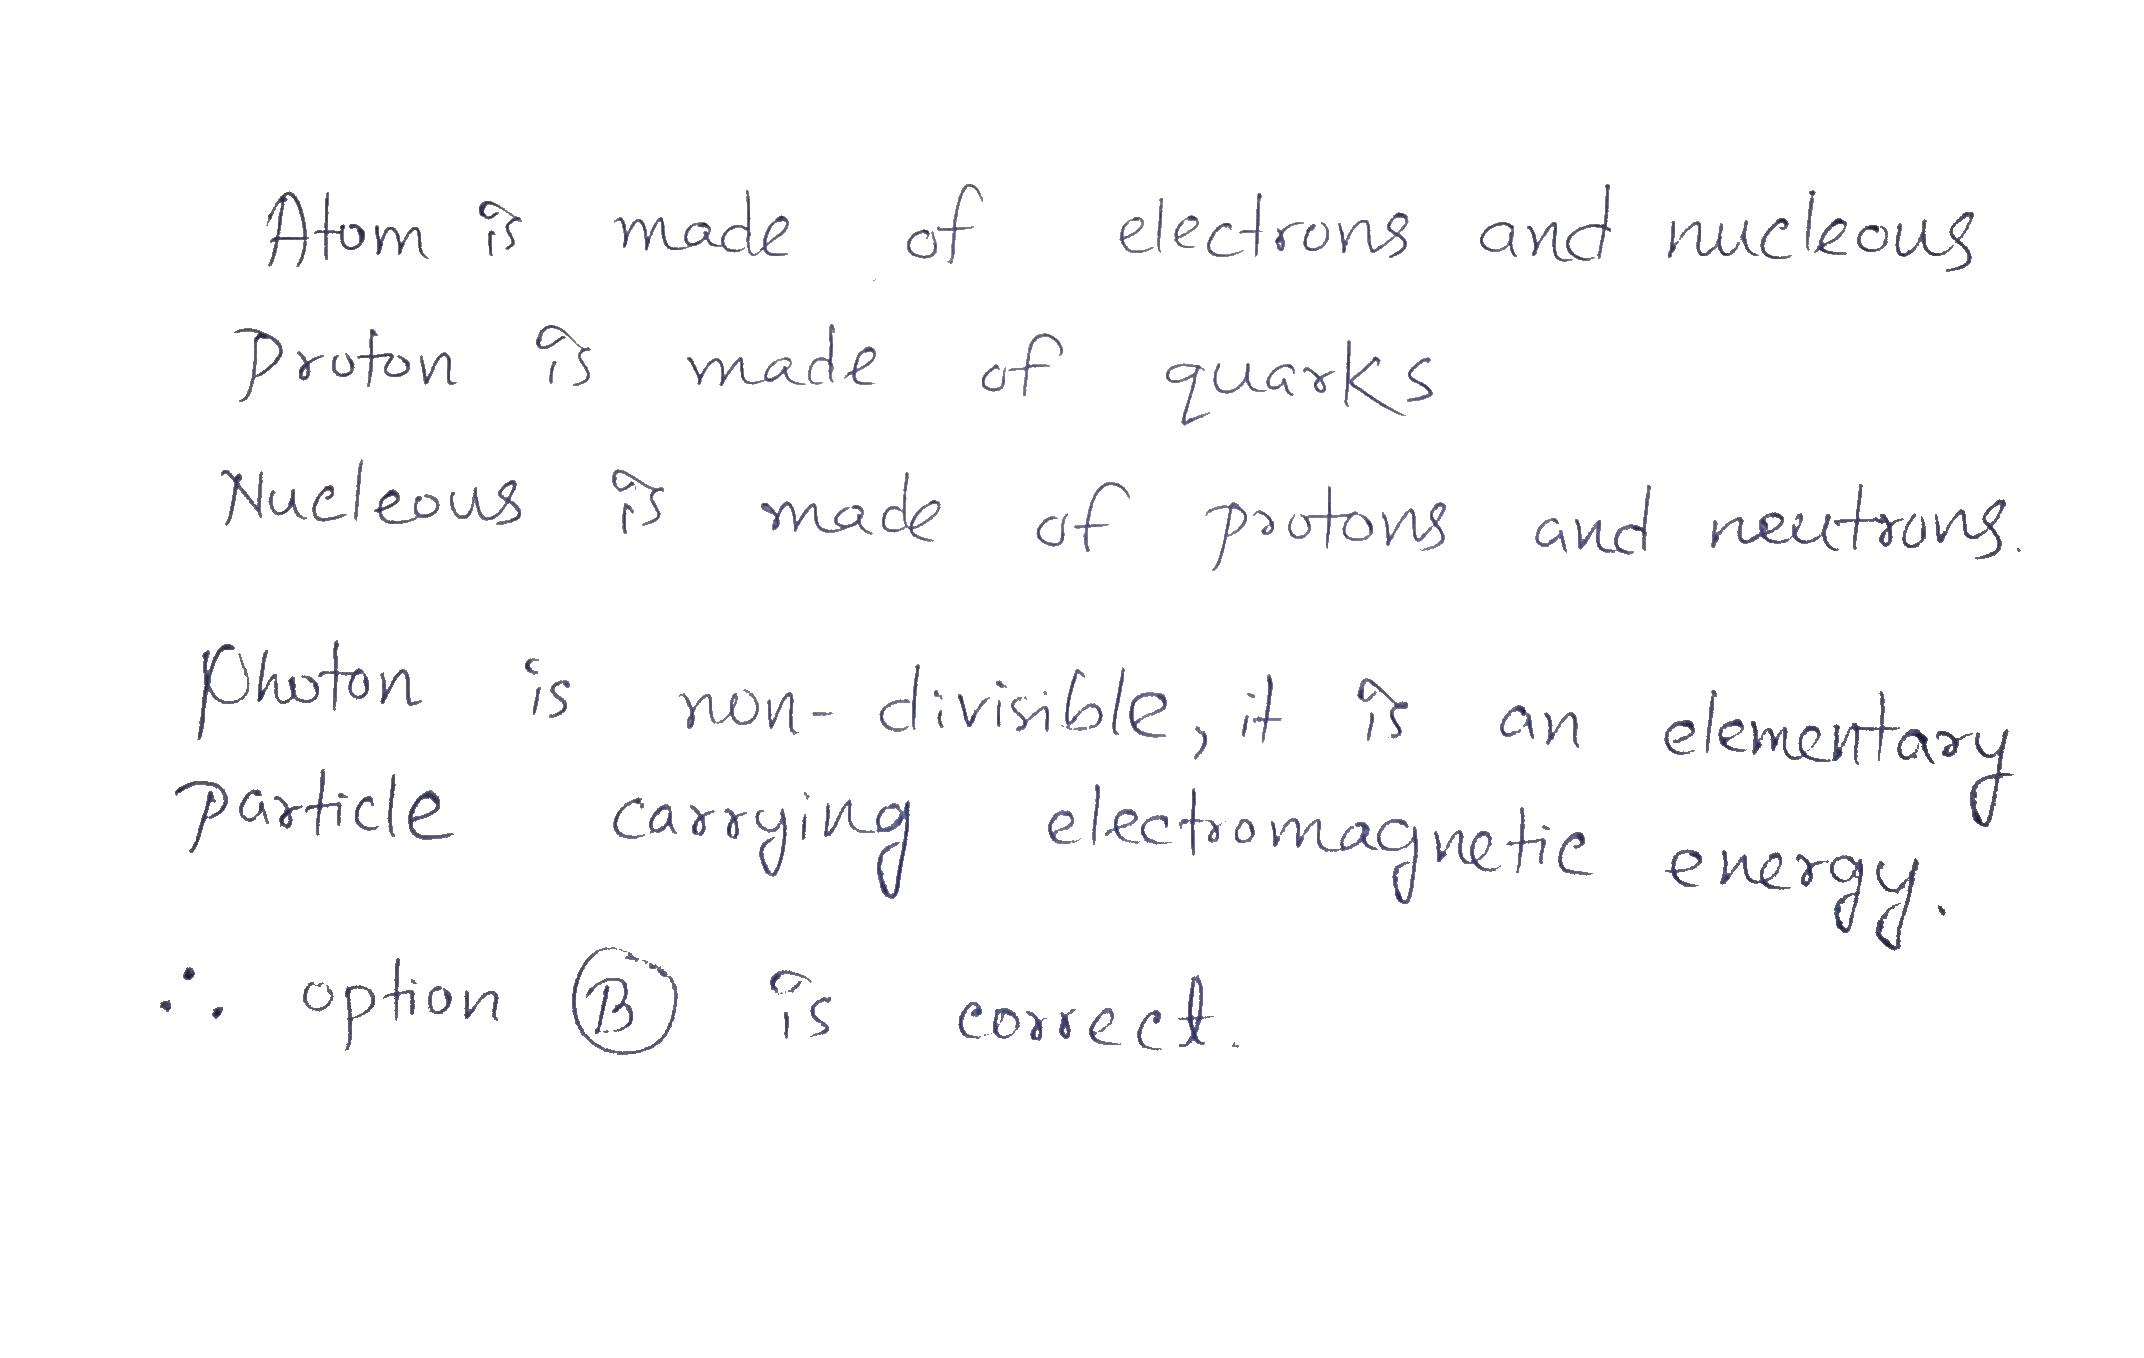 Atom is made of electrons and nucleous
Proton is made of quarks
Nucleous is made of protons and neutrons.
Photon is non-divisible, it is an elementary
particle carrying electromagnetic energy.
∴ option B is correct.